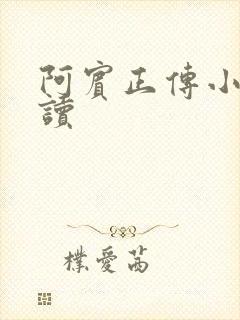 阿賓正傳小
讀
樸愛茜